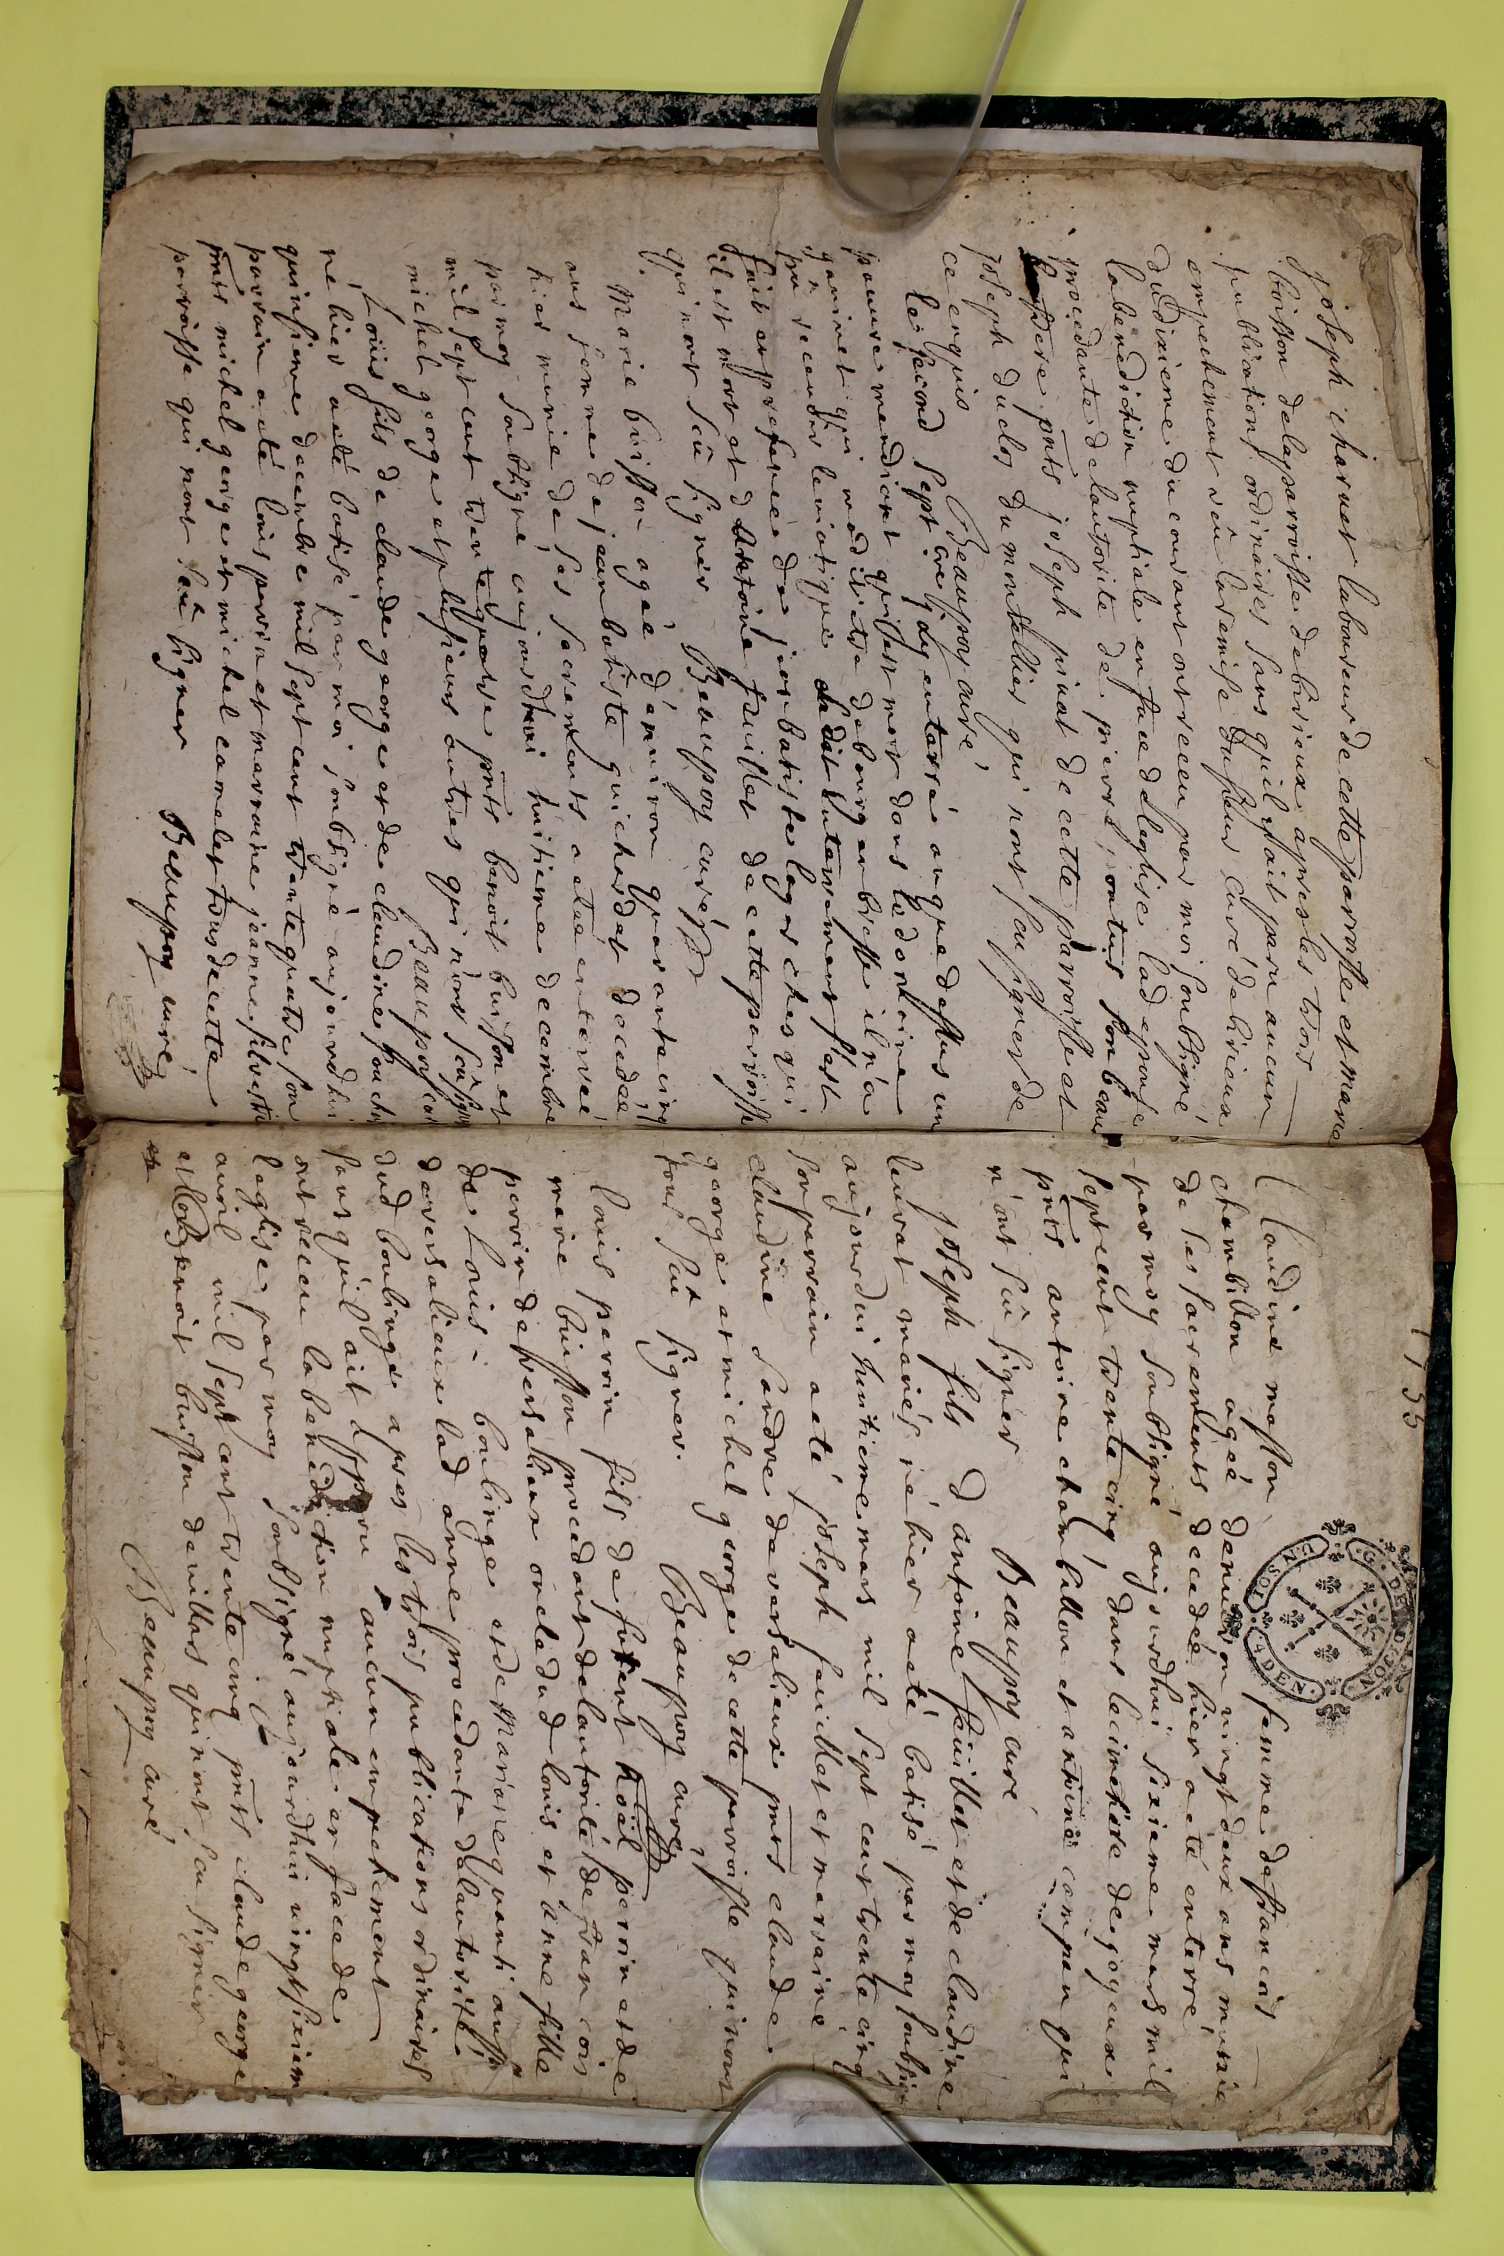 joseph charnet laboureur de cette parroisse et marie
boisson de la parroisse de birieux apres les trois
publications ordinaires sans quil ysait paru aucun
empechement veu la remise du sieur curé de birieux
du dixieme du courant ont receu par moi soubsigné
la benediction nuptiale en face de leglise lad epouse
procedante de lautorite de pierre son beau
frere pnts joseph pinat de cette parroisse et
joseph duclos du montellier qui n'ont sçu signer de
ce enquis Beaupoy curé
le second sept a été enterré au que dessus un
pauvre mendiant qui est mort dans le domaine
qui mad dictte de bourg en bresse il n'a
pu recevoir le viatique ledit enterrement s'est
fait en presence de jean batiste logos chez qui
il est mort et d antoine feuillet de cette parroisse
qui n'ont sçu signer Beaupoy curé
Marie buisson agée d'environ quarante cinq
ans femme de jean batiste guichardet decedée
hier munie de ses sacrements a été enterrée
par moy soubsigné aujourdhui huitieme decembre
mil sept cent trente quatre pnts benoit buisson et
michel george et plusieurs autres qui n'ont sçu signer
Beaupoy curé
Louis fils de claude george et de claudine
né hier a été batisé par moi soubsigné aujourdhui
quinsieme decembre mil sept cent trante quatre son
parrain a été louis perrin et marraine jeanne silvestre
pnts michel george et michel carrelet tous de cette
parroisse qui n'ont sçu signer Beaupoy curé
1735
G. DE
Claudine masson femme de francois
chambillon agée denviron vingt deux ans munie
de ses sacrements decedée hier a eté enterré
par moy soubsigné aujourdhui sixieme mars mil
sept cent trante cinq dans le cimetiere de joyeux
pnts antoine chambillon et antoine campan qui
n'ont sçu signer Beaupoy curé
joseph fils d antoine feuillet et de claudine
leurat mariés né hier a eté batisé par moy soubsigné
aujourdui huitieme mars mil sept cent trente cinq
son parrain a eté joseph feuillet et marraine
claudine sandre de versalieux pnts claude
george et michel george de cette parroisse qui n'ont
tous sçu signer. Beaupoy curé
Louis perrin fils de fut vent noël perrin et de
marie buisson procedant de lautorité de francois
perrin de versalieux oncle dud louis et anne fille
de Louis boulinge et de Mariane quanti aussi
de versalieux lad anne procedante de lautorité
dud boulinge apres les trois publications ordinaires
sans quil ait apparu aucun empechement
ont receu la benediction nuptiale en face de
leglise par moy soubsigné aujourdhui vingt sixieme
avril mil sept cent trente cinq pnts claude george
et benoit buisson de villars qui n'ont sçu signer
Beaupoy curé